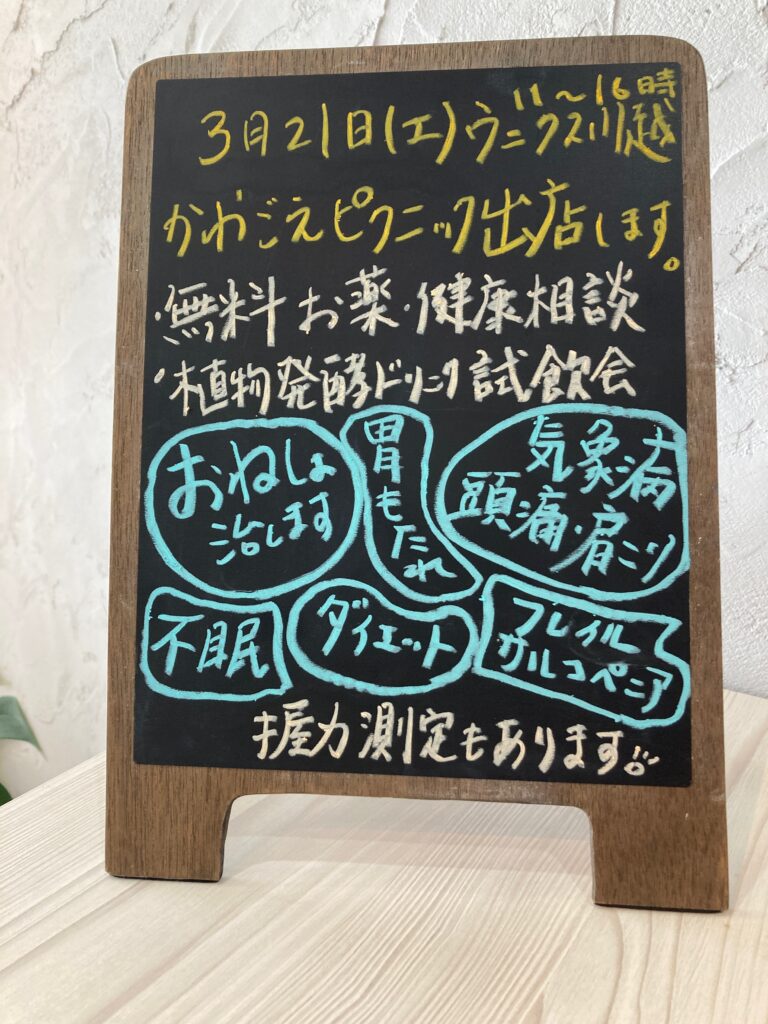 11〜16時
3月21日(土)ウニクス川越
かわごえピクニック出店します。
・無料お薬・健康相談
・植物発酵ドリンク試飲会
おねしょ
治します
胃もたれ
気象病
頭痛・肩こり
不眠
ダイエット
フレイル
サルコペニア
握力測定もあります!!